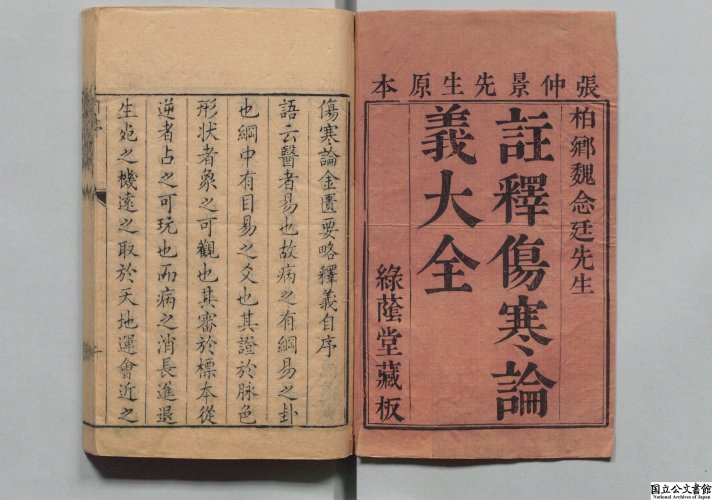 張仲景先生原本
柏鄉魏念廷先生
註釋傷寒論
義大全
綠蔭堂藏板
傷寒論金匱要略釋義自序
語云醫者易也故病之有綱易之卦
也綱中有目易之爻也其證於脉色
形狀者象之可觀也其審於標本從
逆者占之可玩也而病之消長進退
生死之機遠之取於天地運會近之
国立公文書館
National Archives of Japan